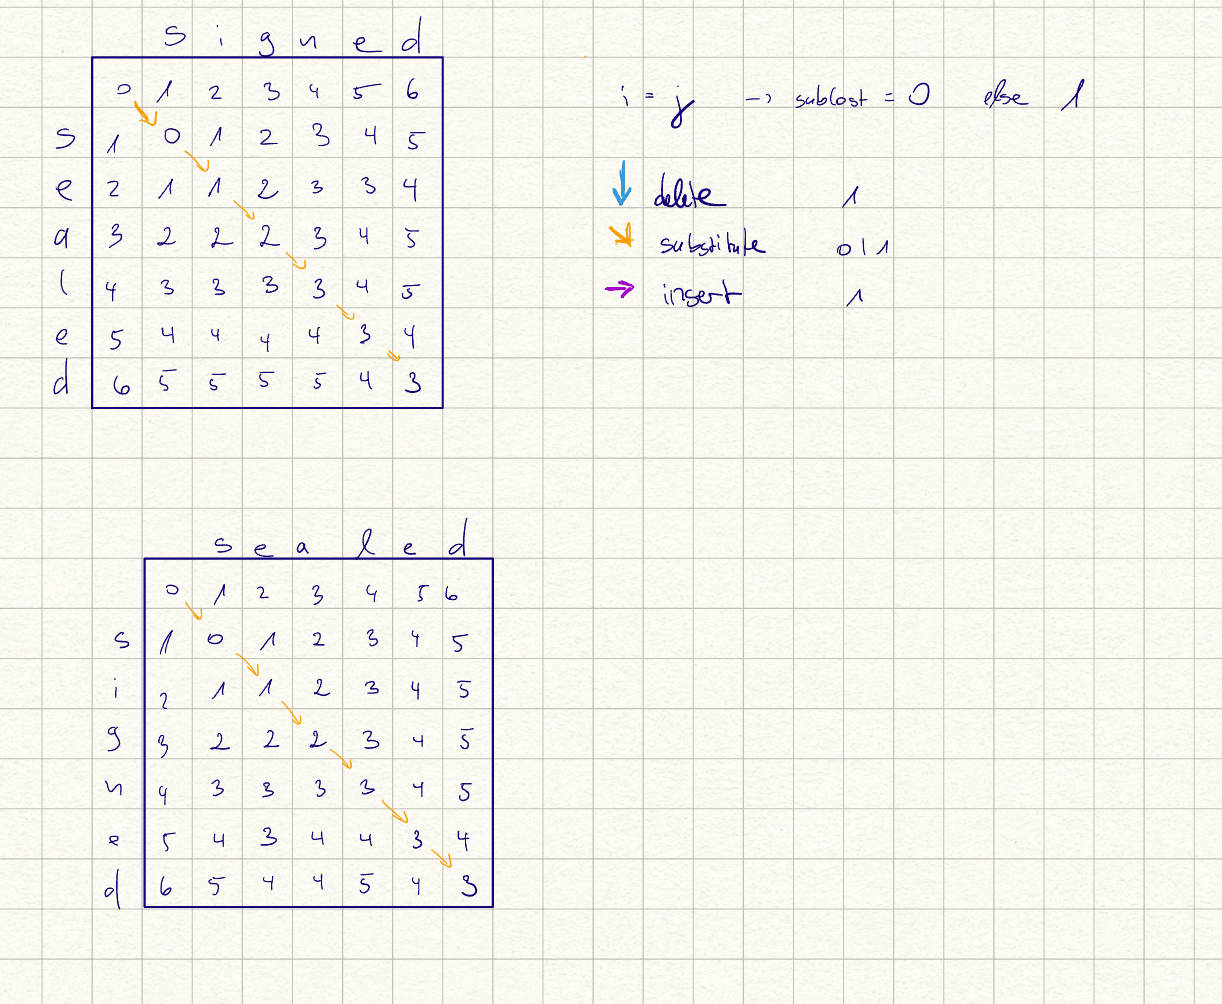 s i g n e d
0 1 2 3 4 5 6
s 1 0 1 2 3 4 5
e 2 1 1 2 3 3 4
a 3 2 2 2 3 4 5
l 4 3 3 3 3 4 5
e 5 4 4 4 4 3 4
d 6 5 5 5 5 4 3
i = j → subCost = 0 else 1
↓ delete 1
↘ substitute 0 | 1
→ insert 1
s e a l e d
0 1 2 3 4 5 6
s 1 0 1 2 3 4 5
i 2 1 1 2 3 4 5
g 3 2 2 2 3 4 5
n 4 3 3 3 3 4 5
e 5 4 3 4 4 3 4
d 6 5 4 4 5 4 3